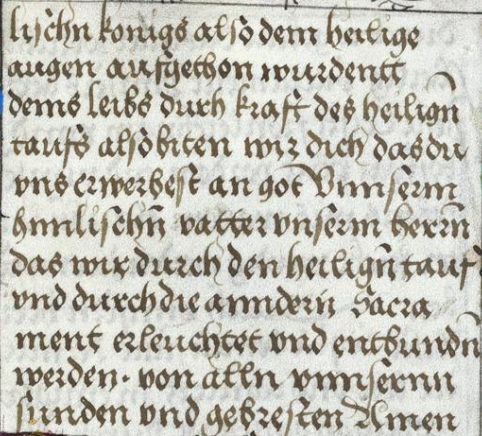 lischn konigs also dem heilige
augen aufgethon wurdentt
deins leibs durch kraft des heilign̄
taufs also biten wir dich das du
vns erwerbest an got Vnnserm
hmlischn̄ vatter vnserm herrn̄
das wir durch den heilign̄ tauf
vnd durch die anndern̄ Sacra
ment erleuchtet vnd entbundn̄
werden. von alln vnnsernn
sunden vnd gebresten Amen